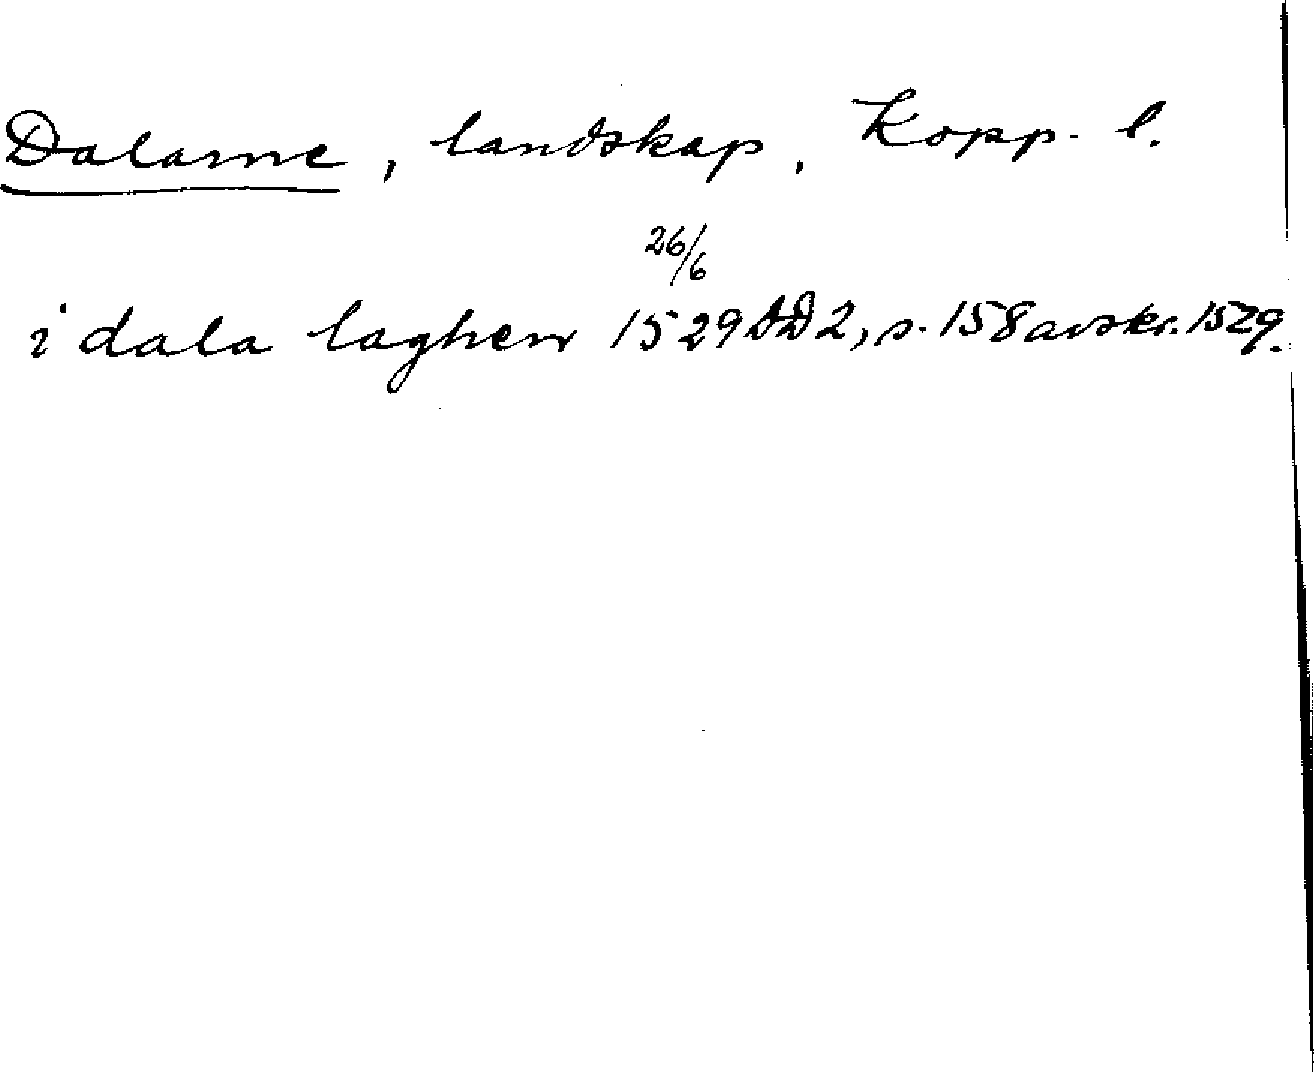 Dalarne, landskap, Kopp. l.
26/6
i dala laghen 1529 DD 2, s. 158 avskr. 1529.